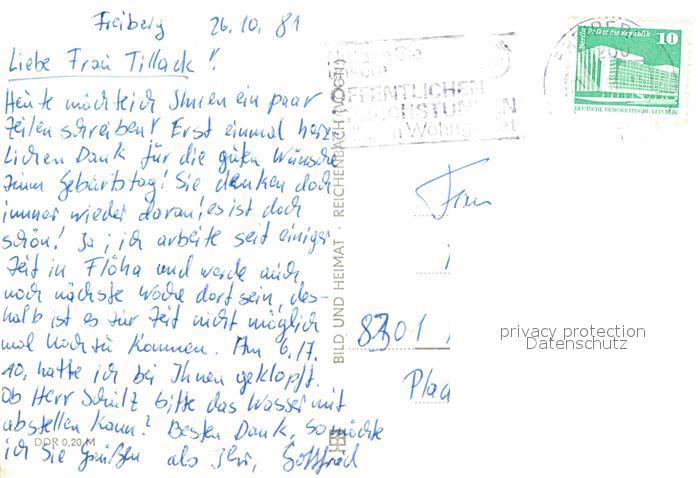 Freiberg 26.10.81
Liebe Frau Tillack!
Heute möchte ich Ihnen ein paar
Zeilen schreiben! Erst einmal herz
lichen Dank für die guten Wünsche
zum Geburtstag! Sie denken doch
immer wieder daran, es ist doch
schön! Ja, ich arbeite seit einiger
Zeit in Flöha und werde auch
noch nächste Woche dort sein, des-
halb ist es zur Zeit nicht möglich
mal hoch zu kommen. Am 6./7.
10. hatte ich bei Ihnen geklopft.
Ob Herr Schulz bitte das Wasser mit
abstellen kann? Besten Dank, so möchte
ich Sie grüßen als Ihr, Gottfried
DDR 0,20 M
BILD UND HEIMAT · REICHENBACH (VOGTL)
ÖFFENTLICHEN
Berlin Palast der Republik
10
DEUTSCHE DEMOKRATISCHE REPUBLIK
Frau
8301
privacy protection
Datenschutz